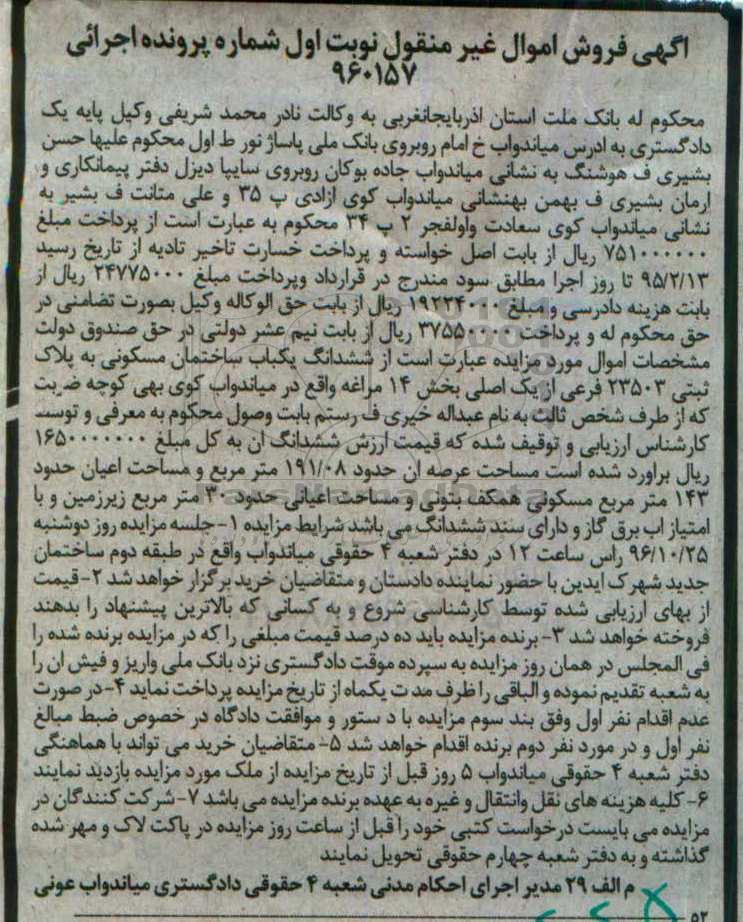 اگهی فروش اموال غیر منقول نوبت اول شماره پرونده اجرائی
۹۶۰۱۵۷
محکوم له بانک ملت استان اذربایجانغربی به وکالت نادر محمد شریفی وکیل پایه یک
دادگستری به ادرس میاندواب خ امام روبروی بانک ملی پاساژ نور ط اول محکوم علیها حسن
بشیری ف هوشنگ به نشانی میاندواب جاده بوکان روبروی سایپا دیزل دفتر پیمانکاری و
ارمان بشیری ف بهمن بهنشانی میاندواب کوی ازادی پ ۳۵ و علی متانت ف بشیر به
نشانی میاندواب کوی سعادت واولفجر ۲ پ ۳۴ محکوم به عبارت است از پرداخت مبلغ
۷۵۱۰۰۰۰۰۰ ریال از بابت اصل خواسته و پرداخت خسارت تاخیر تادیه از تاریخ رسید
۹۵/۲/۱۳ تا روز اجرا مطابق سود مندرج در قرارداد وپرداخت مبلغ ۲۴۷۷۵۰۰۰ ریال از
بابت هزینه دادرسی و مبلغ ۱۹۲۲۴۰۰۰ ریال از بابت حق الوکاله وکیل بصورت تضامنی در
حق محکوم له و پرداخت ۳۷۵۵۰۰۰۰ ریال از بابت نیم عشر دولتی در حق صندوق دولت
مشخصات اموال مورد مزایده عبارت است از ششدانگ یکباب ساختمان مسکونی به پلاک
ثبتی ۲۳۵۰۳ فرعی از یک اصلی بخش ۱۴ مراغه واقع در میاندواب کوی بهی کوچه ضربت
که از طرف شخص ثالث به نام عبداله خیری ف رستم بابت وصول محکوم به معرفی و توسط
کارشناس ارزیابی و توقیف شده که قیمت ارزش ششدانگ ان به کل مبلغ ۱۶۵۰۰۰۰۰۰۰
ریال براورد شده است مساحت عرصه ان حدود ۱۹۱/۰۸ متر مربع و مساحت اعیان حدود
۱۴۳ متر مربع مسکونی همکف بتونی و مساحت اعیانی حدود ۳۰ متر مربع زیرزمین و با
امتیاز اب برق گاز و دارای سند ششدانگ می باشد شرایط مزایده ۱- جلسه مزایده روز دوشنبه
۹۶/۱۰/۲۵ راس ساعت ۱۲ در دفتر شعبه ۴ حقوقی میاتدواب واقع در طبقه دوم ساختمان
جدید شهرک ایدین با حضور نماینده دادستان و متقاضیان خرید برگزار خواهد شد ۲- قیمت
از بهای ارزیابی شده توسط کارشناسی شروع و به کسانی که بالاترین پیشنهاد را بدهند
فروخته خواهد شد ۳- برنده مزایده باید ده درصد قیمت مبلغی را که در مزایده برنده شده را
فی المجلس در همان روز مزایده به سپرده موقت دادگستری نزد بانک ملی واریز و فیش ان را
به شعبه تقدیم نموده و الباقی را ظرف مد ت یکماه از تاریخ مزایده پرداخت نماید ۴- در صورت
عدم اقدام نفر اول وفق بند سوم مزایده با د ستور و موافقت دادگاه در خصوص ضبط مبالغ
نفر اول و در مورد نفر دوم برنده اقدام خواهد شد ۵- متقاضیان خرید می تواند با هماهنگی
دفتر شعبه ۴ حقوقی میاندواب ۵ روز قبل از تاریخ مزایده از ملک مورد مزایده بازدید نمایند
۶- کلیه هزینه های نقل وانتقال و غیره به عهده برنده مزایده می باشد ۷- شرکت کنندگان در
مزایده می بایست درخواست کتبی خود را قبل از ساعت روز مزایده در پاکت لاک و مهر شده
گذاشته و به دفتر شعبه چهارم حقوقی تحویل نمایند
م الف ۲۹ مدیر اجرای احکام مدنی شعبه ۴ حقوقی دادگستری میاندواب عونی
۵۲